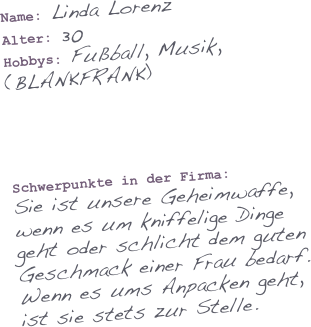 Name: Linda Lorenz
Alter: 30
Hobbys: Fußball, Musik,
(BLANKFRANK)
Schwerpunkte in der Firma:
Sie ist unsere Geheimwaffe,
wenn es um kniffelige Dinge
geht oder schlicht dem guten
Geschmack einer Frau bedarf.
Wenn es ums Anpacken geht,
ist sie stets zur Stelle.